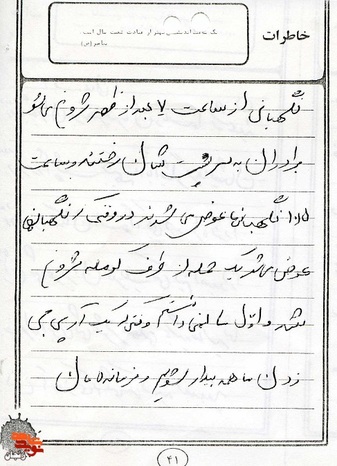 خاطرات
یک ساعت اندیشیدن بهتر از عبادت شصت سال است
پیامبر (ص)
نگهبانی از ساعت ۷ بعد از ظهر شروع می‌شو
برادران به سر پست شان رفتند و ساعت
نگهبان‌ها عوض می شدند در وقتی که نگهبانها
عوض می‌شد یک حمله از طرف کومله شروع
شد و اول ما نمی‌دانستیم وقتی که یک آر پی جی
زدند ما همه بیدار شدیم و فرمانده مان
۴۱